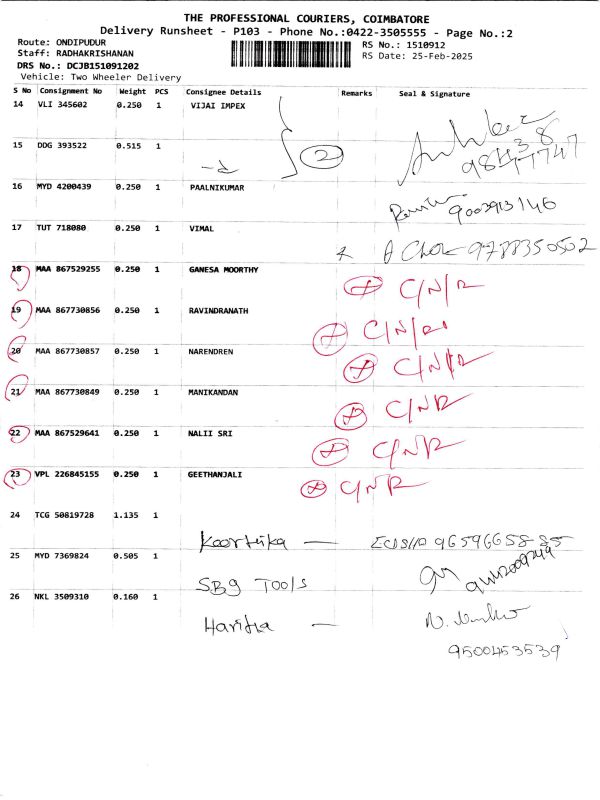 THE PROFESSIONAL COURIERS, COIMBATORE
Delivery Runsheet - P103 - Phone No.:0422-3505555 - Page No.:2
Route: ONDIPUDUR
RS No.: 1510912
Staff: RADHAKRISHANAN
RS Date: 25-Feb-2025
DRS No.: DCJB151091202
Vehicle: Two Wheeler Delivery
S No Consignment No Weight PCS Consignee Details Remarks Seal & Signature
14 VLI 345602 0.250 1 VIJAI IMPEX
15 DDG 393522 0.515 1
2
16 MYD 4200439 0.250 1 PAALNIKUMAR
9003913146
17 TUT 718080 0.250 1 VIMAL
9788350502
18 MAA 867529255 0.250 1 GANESA MOORTHY C/N/R
19 MAA 867730856 0.250 1 RAVINDRANATH C/N/R
20 MAA 867730857 0.250 1 NARENDREN C/N/R
21 MAA 867730849 0.250 1 MANIKANDAN C/NR
22 MAA 867529641 0.250 1 NALII SRI C/NR
23 VPL 226845155 0.250 1 GEETHANJALI C/NR
24 TCG 50819728 1.135 1
Koorthika — 9659665885
25 MYD 7369824 0.505 1
SBg TOOlS
26 NKL 3509310 0.160 1
Haritha —
9500453539